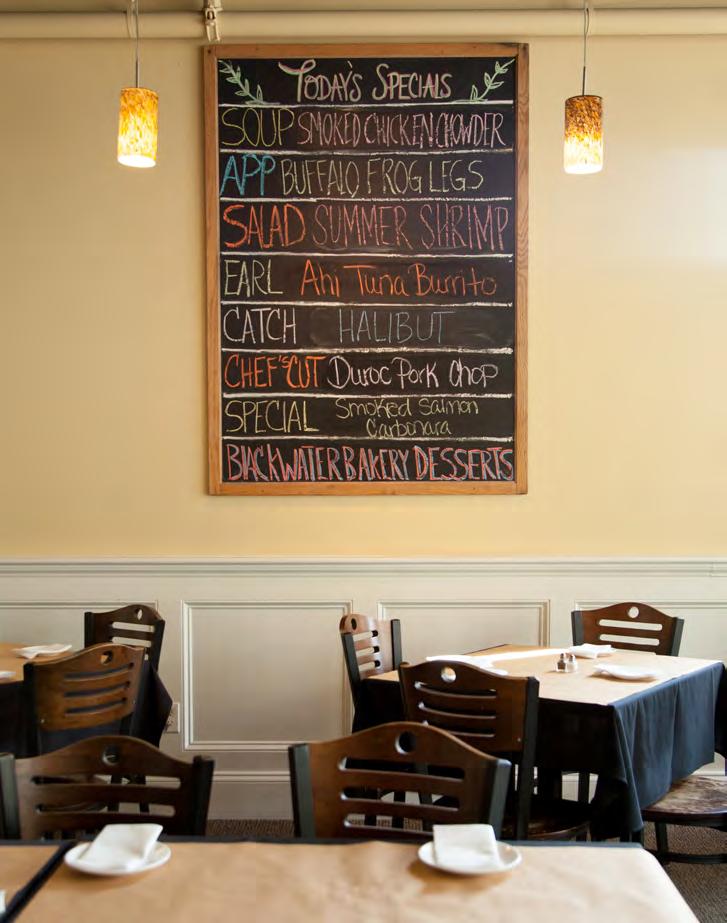 TODAY'S SPECIALS
SOUP SMOKED CHICKEN CHOWDER
APP BUFFALO FROG LEGS
SALAD SUMMER SHRIMP
EARL Ahi Tuna Burrito
CATCH HALIBUT
CHEF'S CUT Duroc Pork Chop
SPECIAL Smoked Salmon
Carbonara
BLACKWATER BAKERY DESSERTS